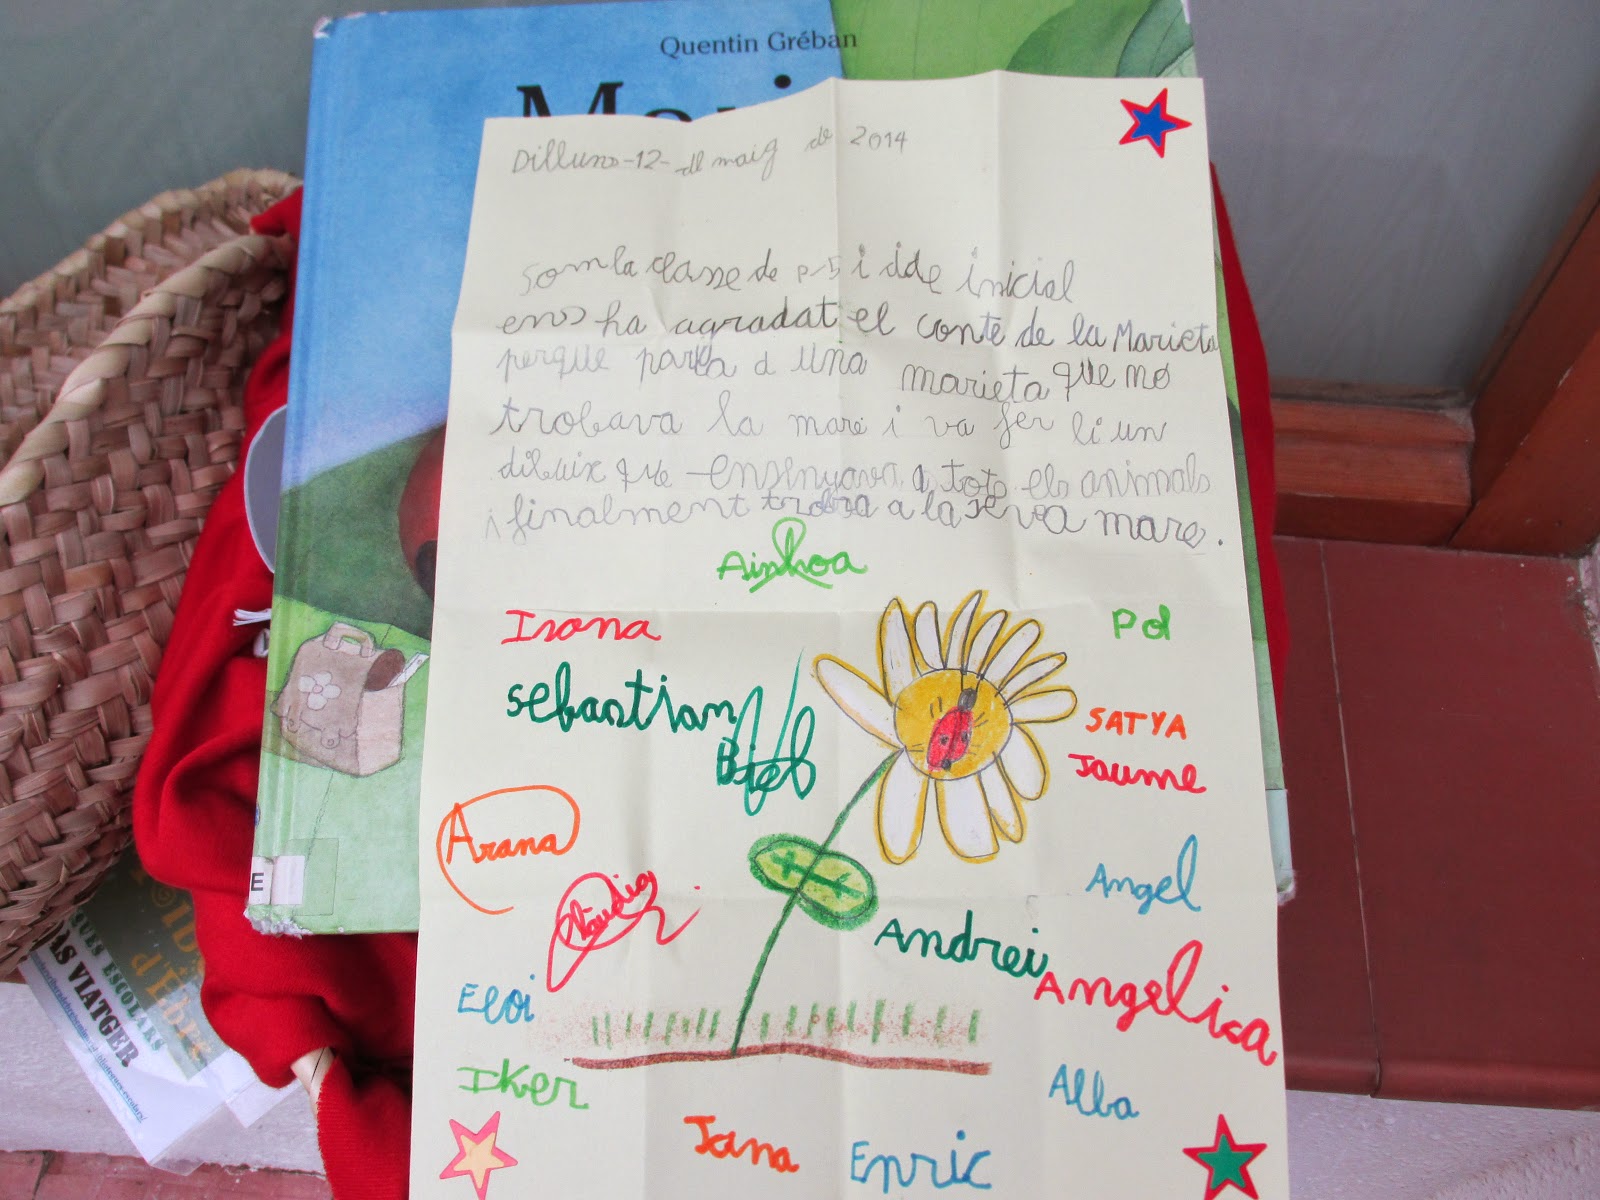 Quentin Gréban
Mari
Dilluns-12-de maig de 2014
som la classe de p-5 i cicle inicial
ens ha agradat el conte de la Marieta
perque parla d una marieta que no
trobava la mare i va fer li un
dibuix que ensenyava a tots els animals
i finalment troba a la seva mare.
Ainhoa
Irona
Pol
sebastian
SATYA
Jaume
Arana
Angel
Clàudia
Andrei
Angelica
Eloi
Iker
Alba
Jana
Enric
E
QUES ESCOLARS
AS VIATGER
d'Ebre